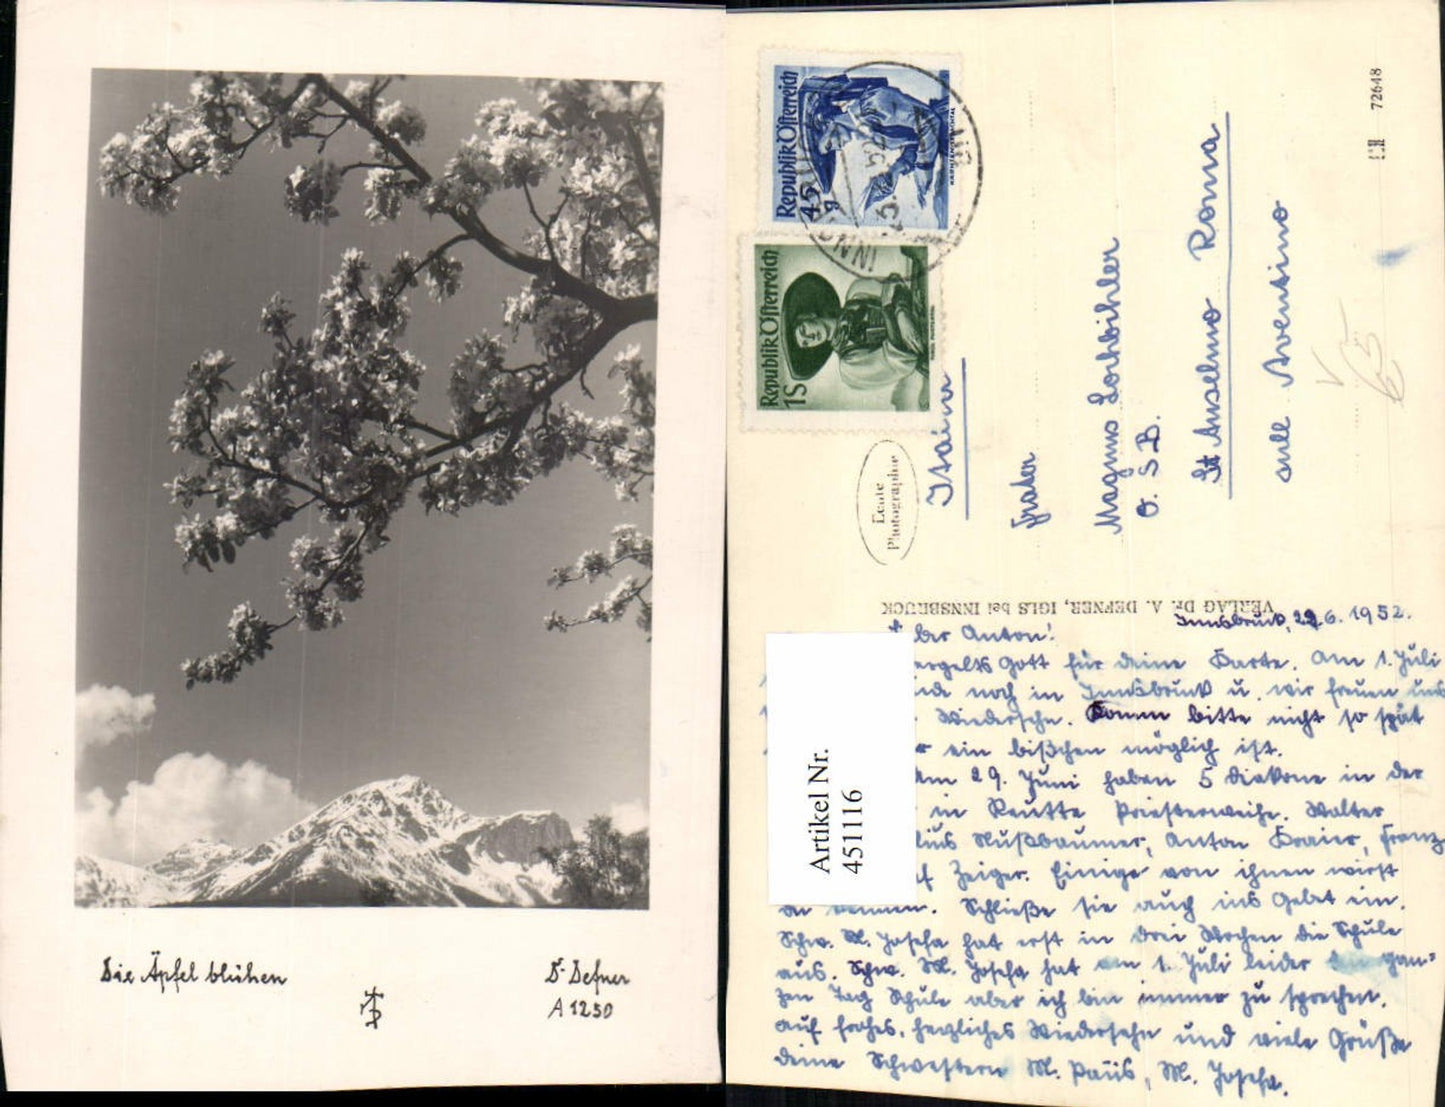 Die Äpfel blühen
Dr. Defner
A 1250
Republik Österreich
45 g
Republik Österreich
1S
INNSBRUCK
Echte
Photographie
VERLAG Dr. A. DEFNER, IGLS bei INNSBRUCK
72648
Artikel Nr.
451116
Italia
Frater
Magnus Lochbihler
O. S. B.
St Anselmo Roma
sull Aventino
Innsbruck, 22.6.1952.
Lieber Anton!
Vergelts Gott für deine Karte. Am 1. Juli
noch in Innsbruck u. wir freuen uns
Wiedersehn. Komm bitte nicht so spät
ein bißchen möglich ist.
Am 29. Juni haben 5 Diakone in der
in Reutte Priesterweihe. Walter
Nußbaumer, Anton Kraier, Franz
Zeiger. Einige von ihnen wirst
du kennen. Schließe sie auch ins Gebet ein.
Schw. M. Josefa hat erst in drei Wochen die Schule
aus. Schw. M. Josefa hat am 1. Juli leider den gan-
zen Tag Schule aber ich bin immer zu sprechen.
Auf frohes, herzliches Wiedersehn und viele Grüße
deine Schwestern M. Pais, M. Josefa.